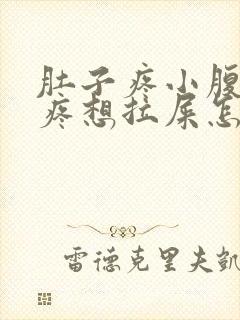 肚子疼小腹
疼想拉屎怎
雷德克里夫凯